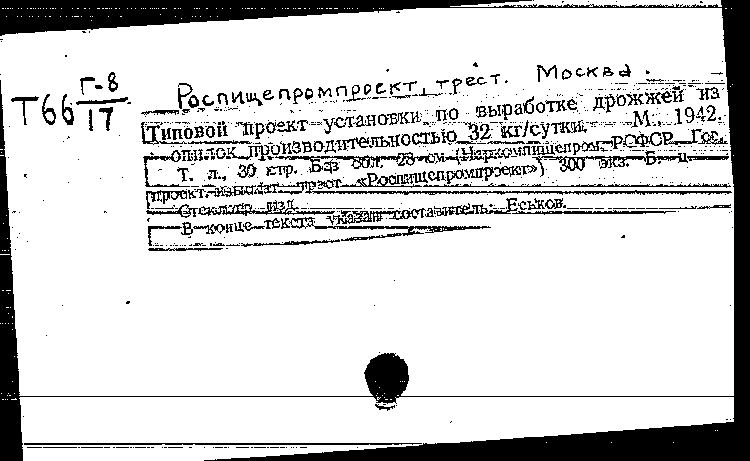 Г-8
Т66 17
Роспищепромпроект, трест. Москва.
Типовой проект установки по выработке дрожжей из
опилок производительностью 32 кг/сутки. М., 1942.
Т. л., 30 стр. Без обл. 28 см (Наркомпищепром РСФСР. Гос.
проект.-изыскат. трест «Роспищепромпроект») 300 экз. Б. ц.
Стеклогр. изд.
В конце текста указан составитель: Еськов.